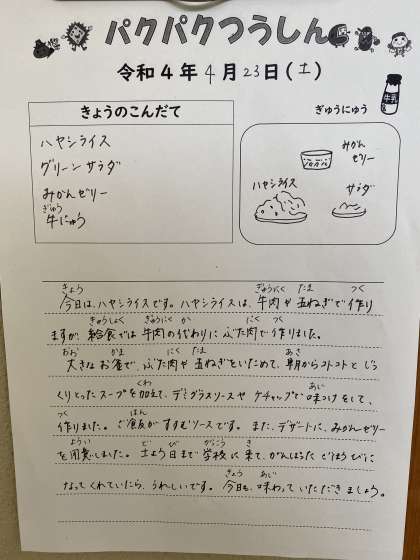 パクパクつうしん
令和4年4月23日(土)
きょうのこんだて
ハヤシライス
グリーンサラダ
みかんゼリー
ぎゅう
牛にゅう
ぎゅうにゅう
牛乳
みかん
ゼリー
ハヤシライス
サラダ
きょう ぎゅうにく たま つく
今日は、ハヤシライスです。ハヤシライスは、牛肉や玉ねぎで作り
きゅうしょく ぎゅうにく か にく つく
ますが、給食では牛肉の代わりにぶた肉で作りました。
おお かま にく たま あさ
大きなお釜で、ぶた肉や玉ねぎをいためて、朝からコトコトとじっ
くわ あじ
くりとったスープを加えて、デミグラスソースやケチャップで味つけをして、
つく はん
作りました。ご飯がすすむソースです。また、デザートに、みかんゼリー
ようい ど び がっこう き
を用意しました。土よう日まで学校に来て、がんばったごほうびに
きょう あじ
なってくれていたら、うれしいです。今日も、味わっていただきましょう。